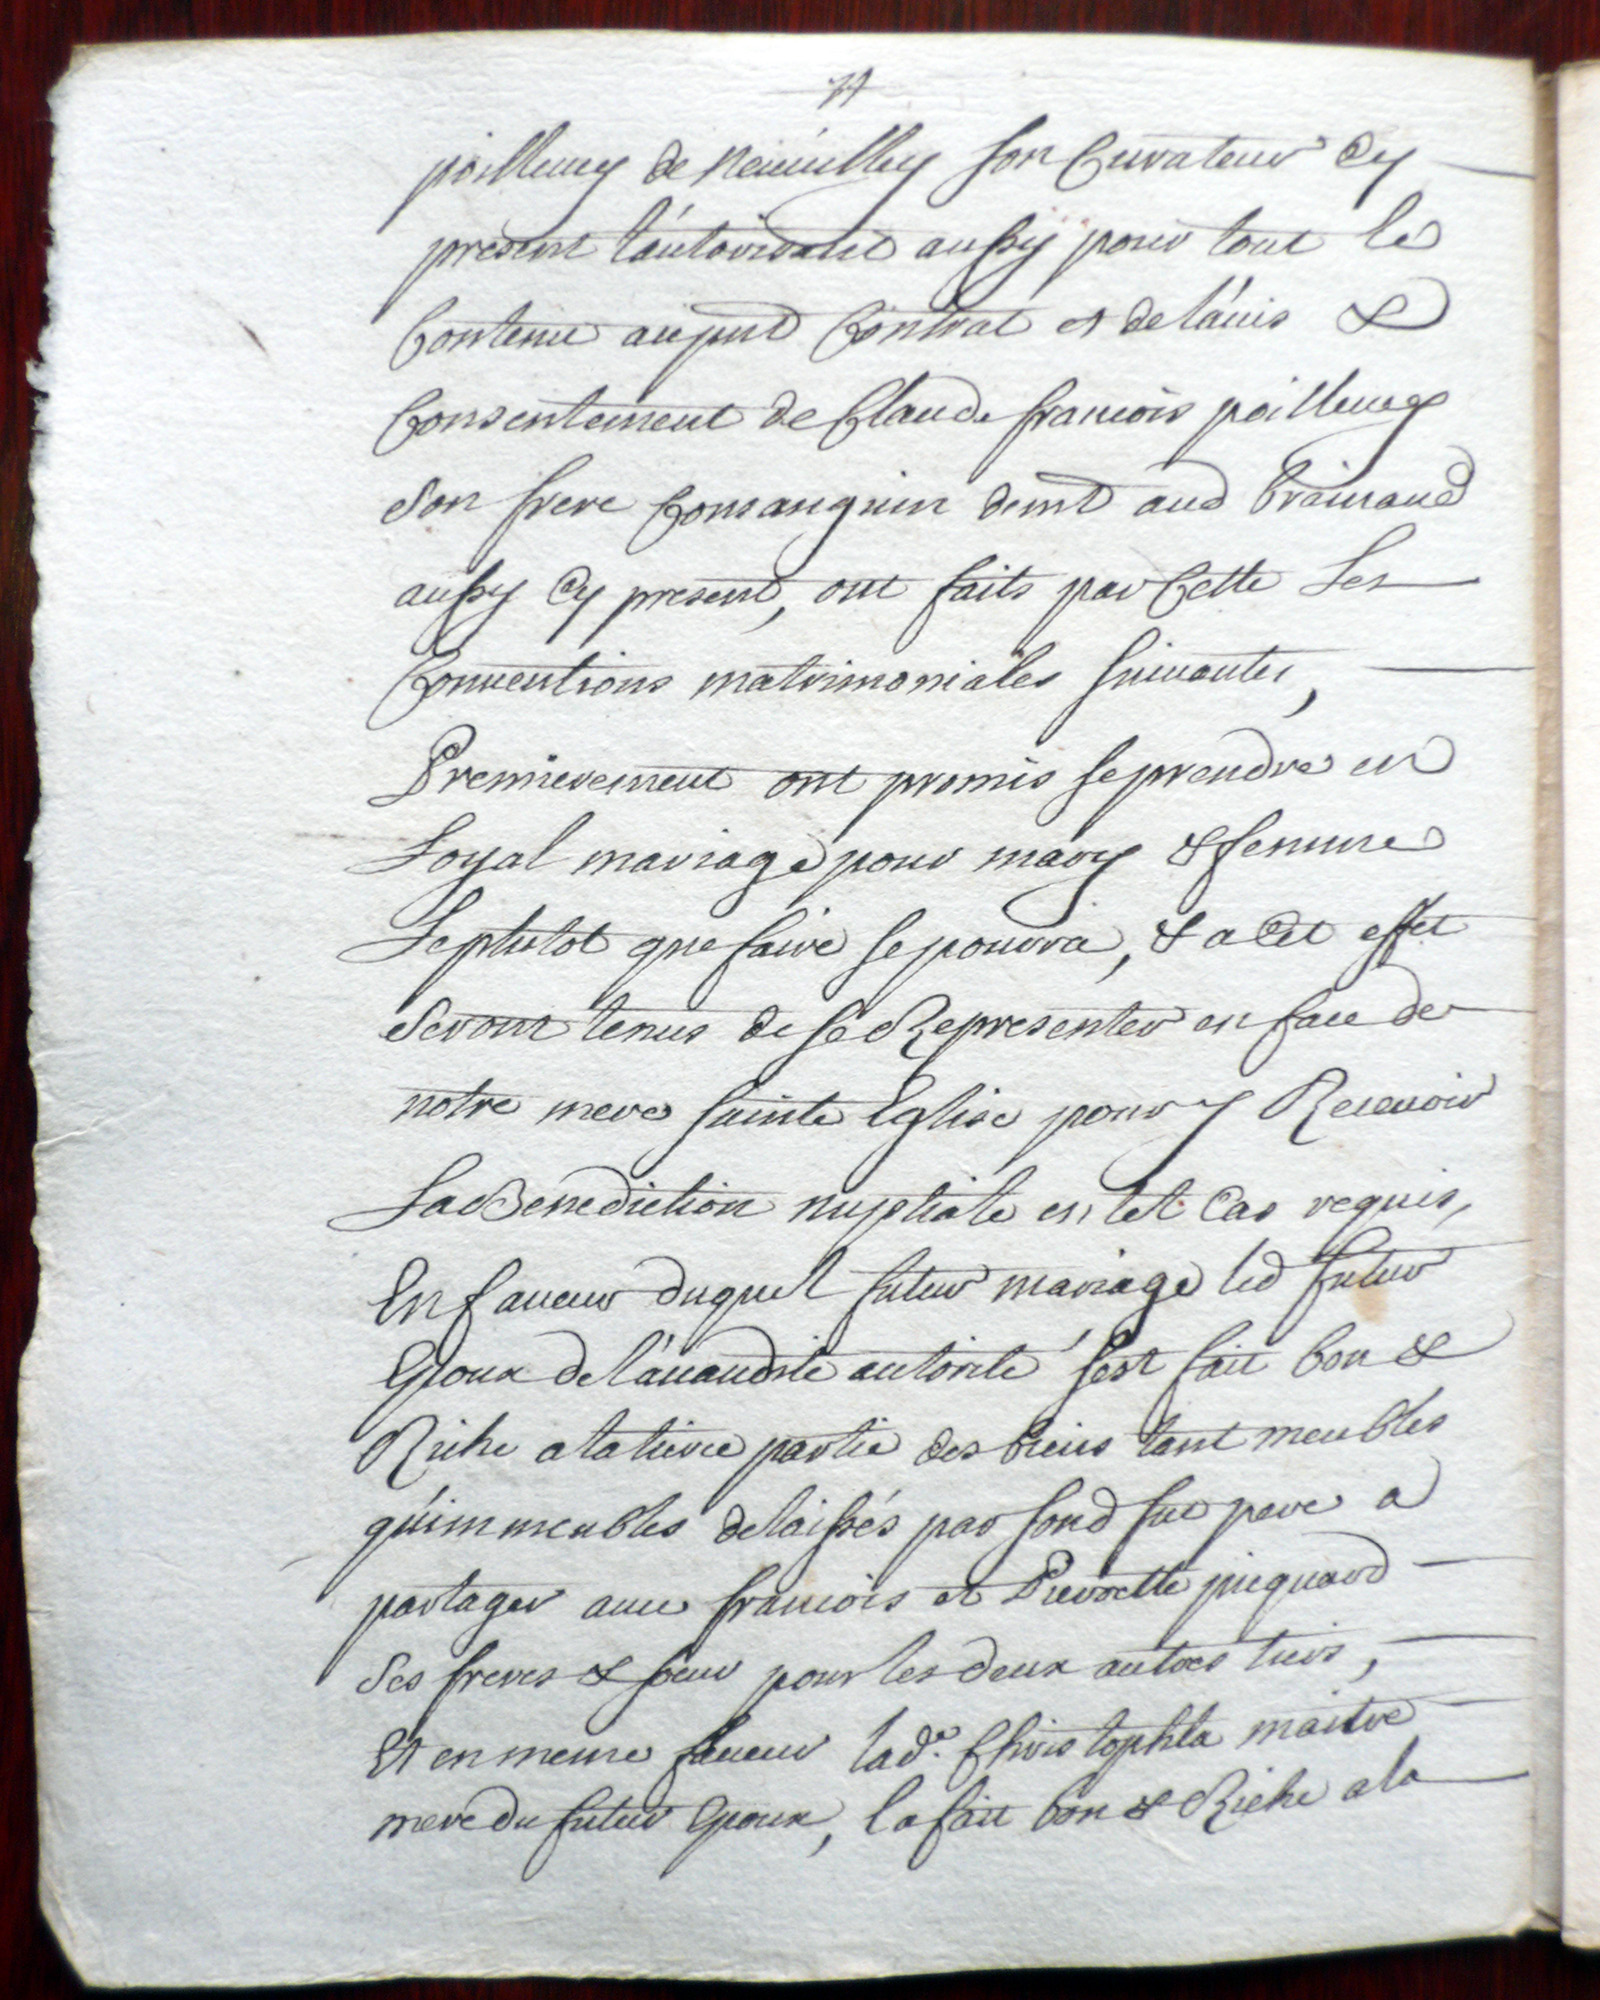 poilleney de Neuuilley son Curateur Cy
present l'autorisant aussy pour tout le
Contenu au pnt Contrat et de l'auis &
Consentement de Claude francois poilleney
Son frere Consanguin demt aud
aussy Cy present, ont faits par Cette Les
Conuentions matrimoniales suiuantes,
Premierement ont promis se prendre en
Loyal mariage pour mary & femme
Leplutot que faire se pourra, & a Cet effet
Seront tenus de se Representer en face de
notre mere sainte Eglise pour y Receuoir
La Benediction nuptiale en tel Cas requis,
En faueur duquel futur mariage led futur
Epoux de l'auandite autorité s'est fait bon &
Riche a la tierce partie des biens tant meubles
qu'immeubles delaissés par sond fut pere a
partager auec francois et Pierrette piequard
Ses freres & soeur pour les deux autres tiers,
Et en meme faueur lade. Christophla maitre
mere du futur Epoux, la fait bon & Riche a la